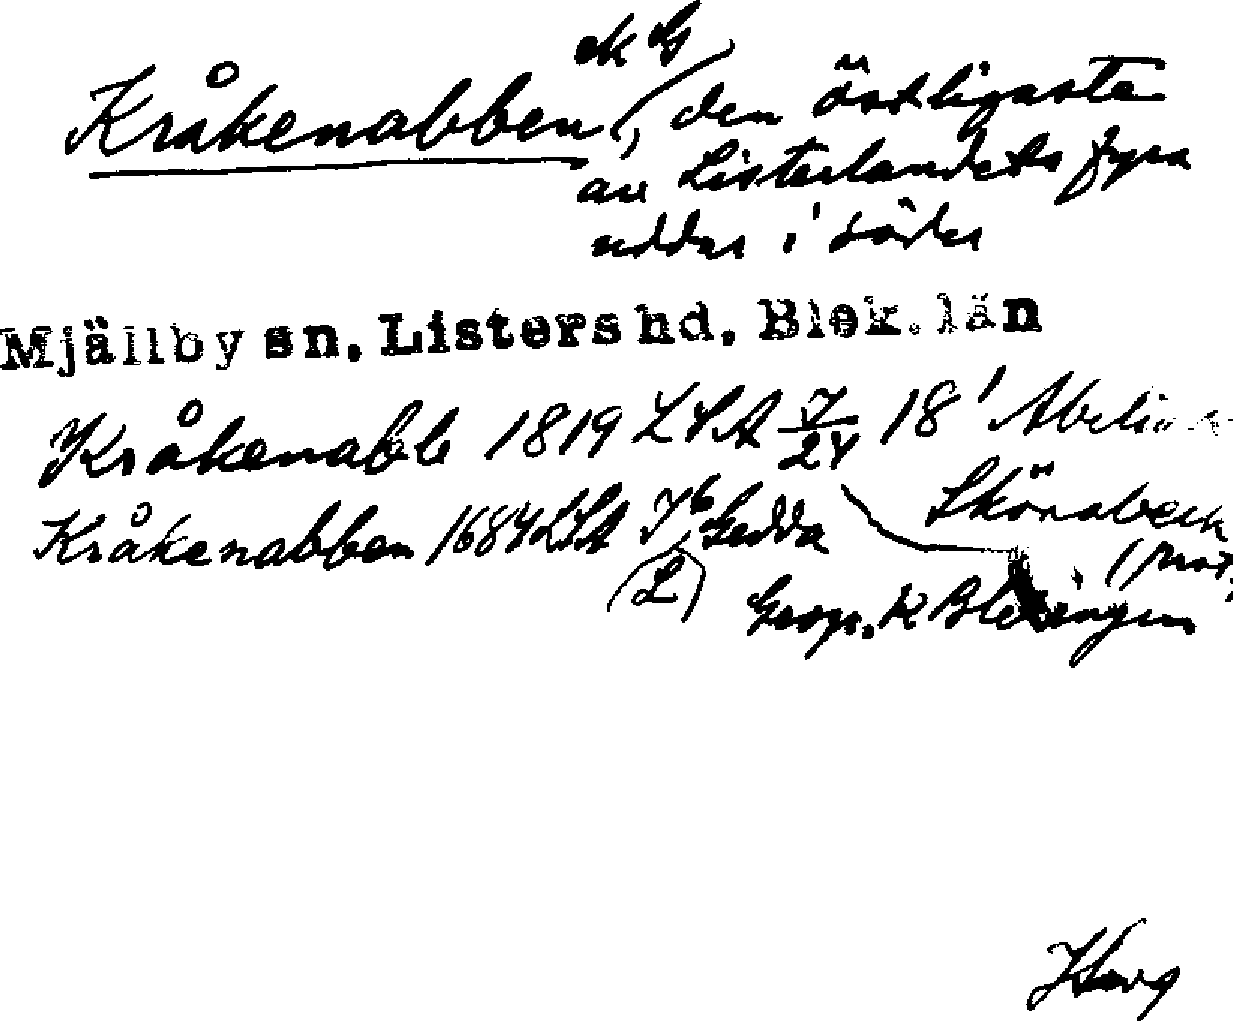 ek G
Kråkenabben (, den östligaste
av Listerlandets fyra
uddar i söder
Mjällby sn, Listers hd, Blek. län
Kråkenabb 1819 LSA 7/24 18'
Kråkenabben 1684 LSA Gedda Skönabeck
(L) Geogr. k Blekingen